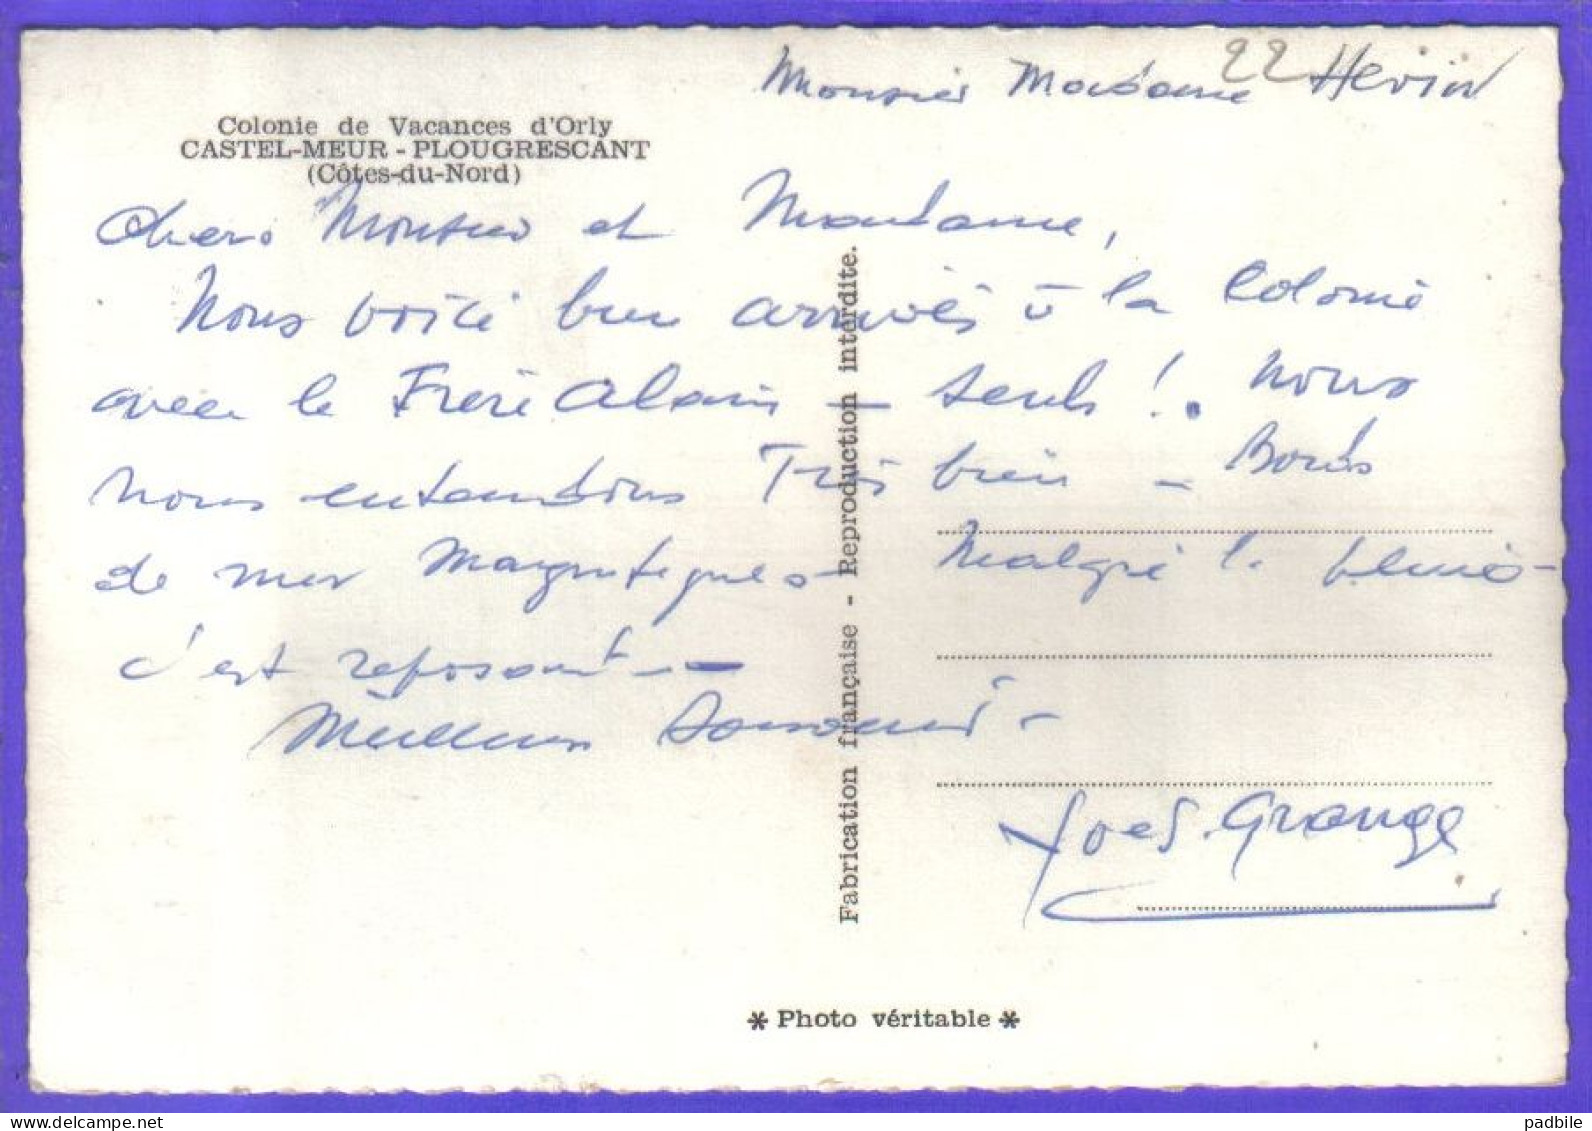 22
Monsieur Madame Hevin
Colonie de Vacances d'Orly
CASTEL-MEUR - PLOUGRESCANT
(Côtes-du-Nord)
Chers Monsieur et Madame,
Nous voici bien arrivés à la Colonie
avec le Frère Alain - seuls !. Nous
nous entendons Très bien - Bords
de mer magnifiques - Malgré la pluie -
c'est reposant -
Meilleurs Souvenirs -
Yves Grange
Fabrication française - Reproduction interdite.
* Photo véritable *
padbile.com